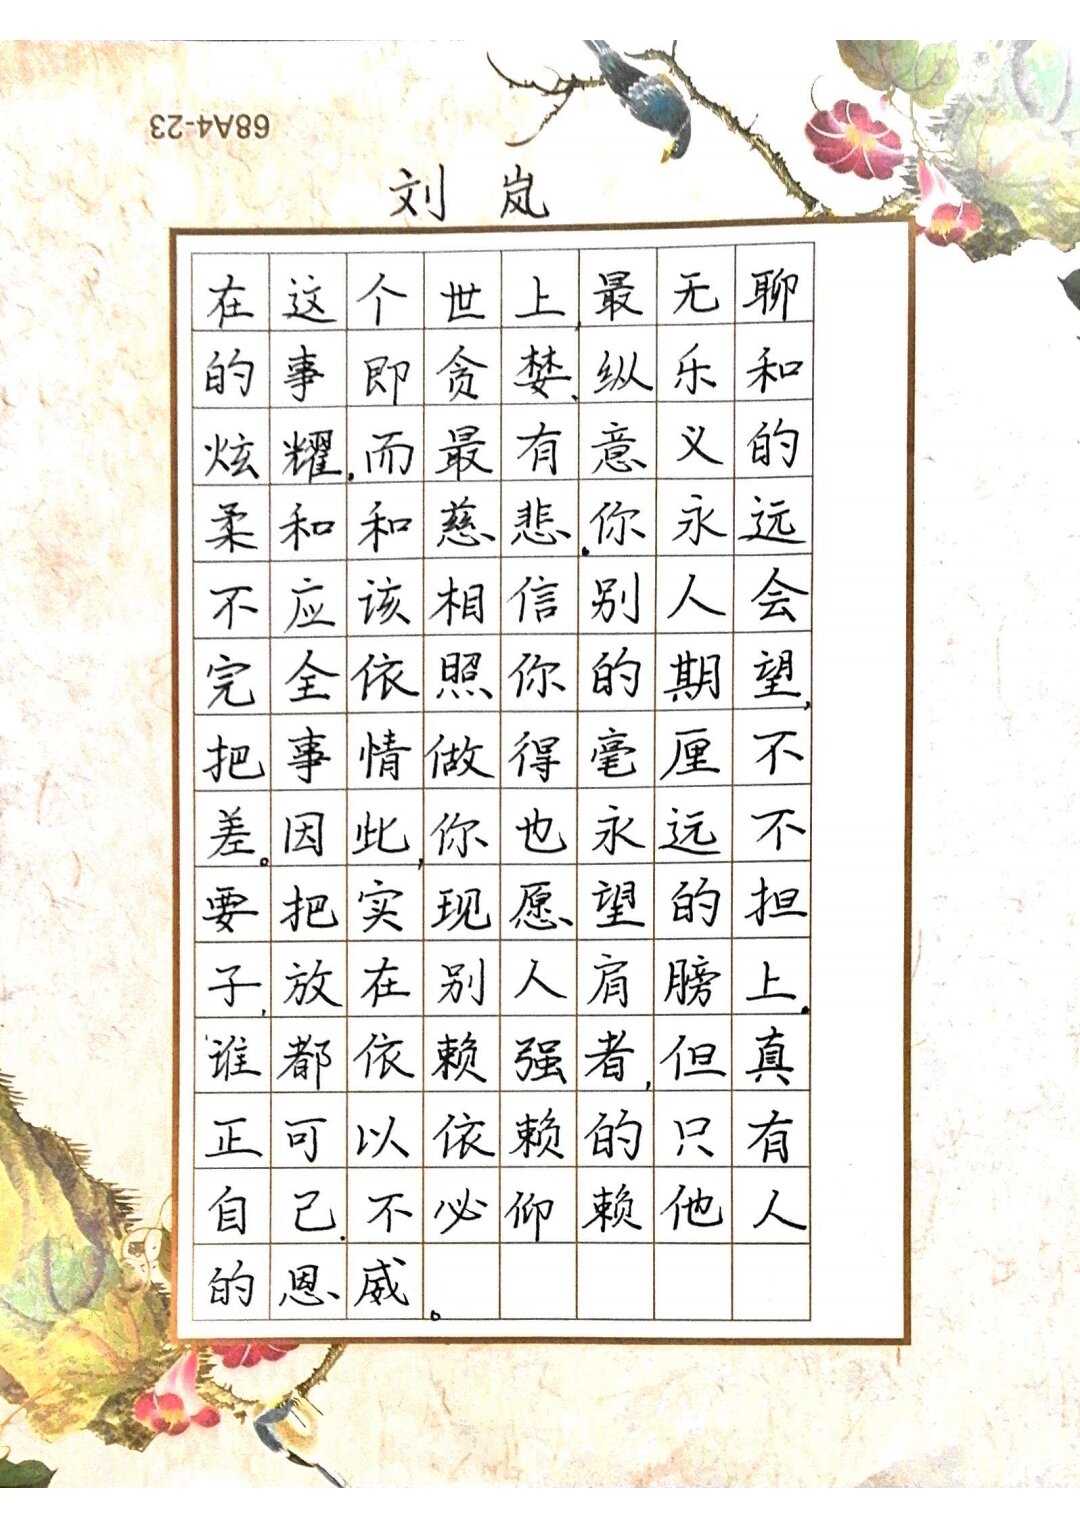 68A4-23
刘 岚
在这个世上,最无聊
的事即贪婪、纵乐和
炫耀,而最有意义的
柔和和慈悲.你永远
不应该相信别人会
完全依照你的期望,
把事情做得毫厘不
差。因此,你也永远不
要把实现愿望的担
子,放在别人肩膀上.
谁都依赖强者,但真
正可以依赖的只有
自己.不必仰赖他人
的恩威。